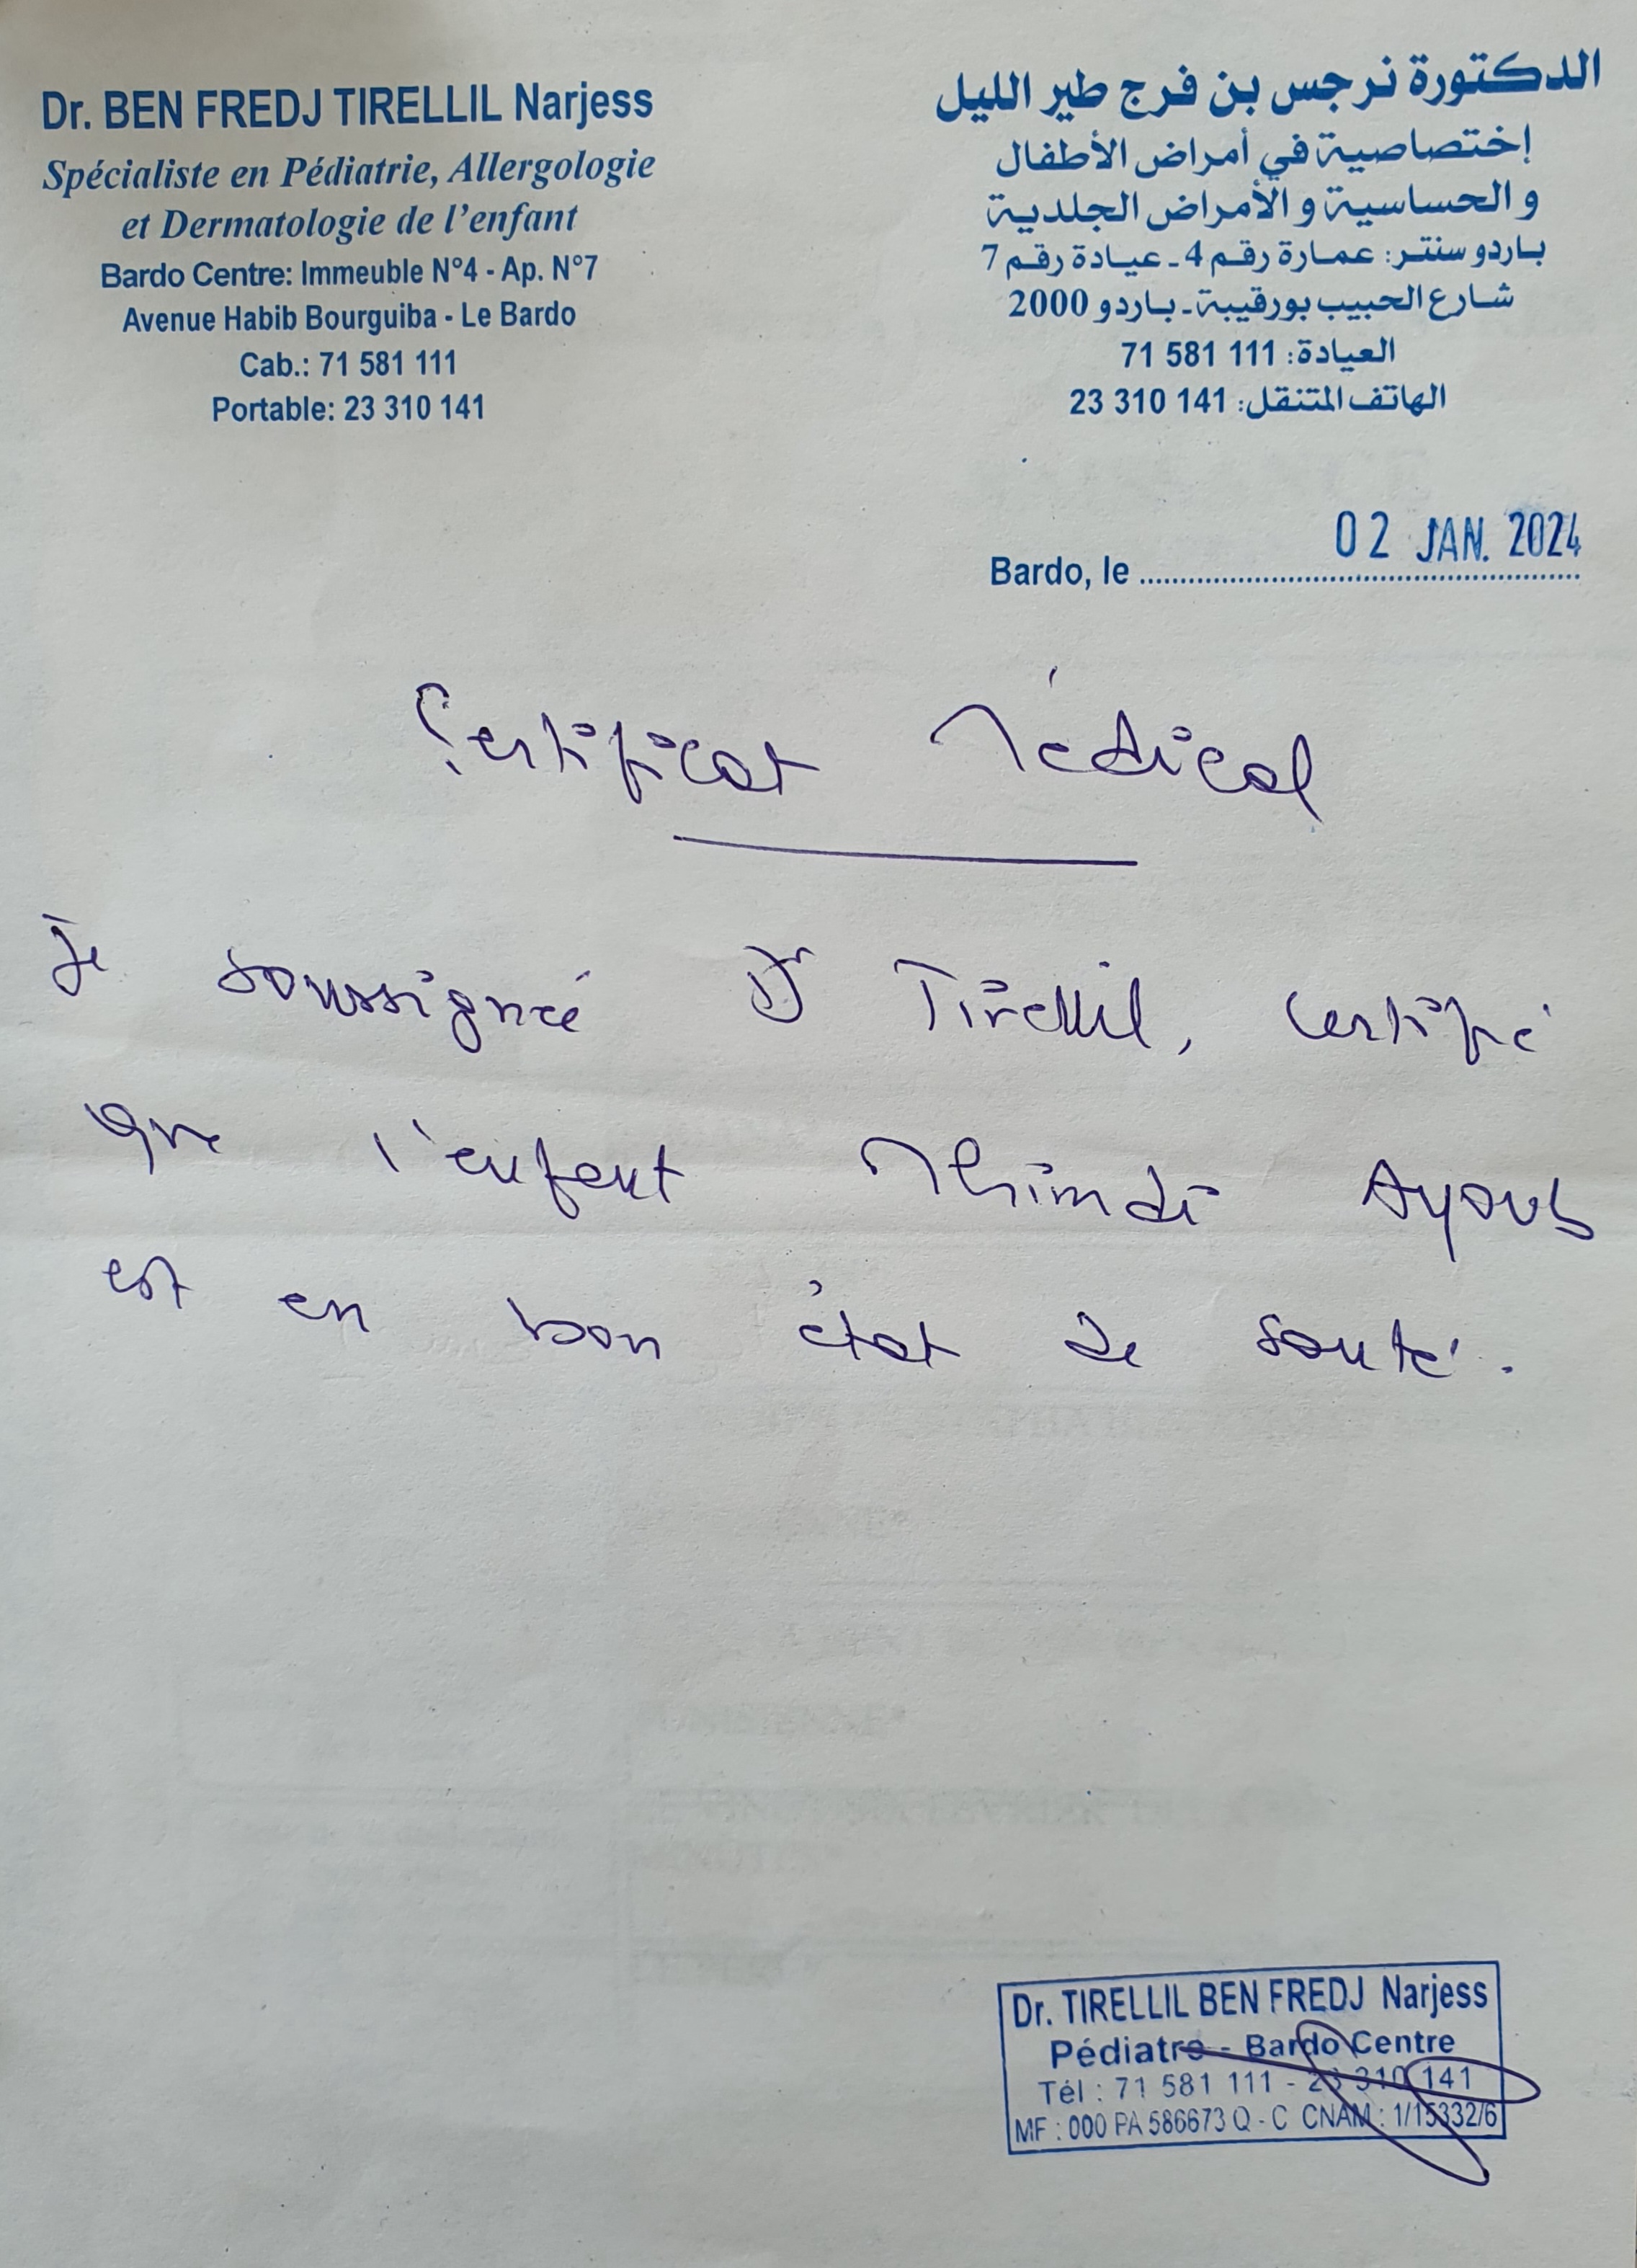 Dr. BEN FREDJ TIRELLIL Narjess
Spécialiste en Pédiatrie, Allergologie
et Dermatologie de l'enfant
Bardo Centre: Immeuble N°4 - Ap. N°7
Avenue Habib Bourguiba - Le Bardo
Cab.: 71 581 111
Portable: 23 310 141
الدكتورة نرجس بن فرج طير الليل
إختصاصية في أمراض الأطفال
و الحساسية و الأمراض الجلدية
باردو سنتر: عمارة رقم 4 - عيادة رقم 7
شارع الحبيب بورقيبة - باردو 2000
العيادة: 111 581 71
الهاتف المتنقل: 141 310 23
Bardo, le 02 JAN. 2024
Certificat Médical
Je soussigné Dr Tirellil, certifié
que l'enfant Ayoub
est en bon état de santé.
Dr. TIRELLIL BEN FREDJ Narjess
Pédiatre - Bardo Centre
Tél : 71 581 111 - 23 310 141
MF : 000 PA 586673 Q - C CNAM : 1/15332/6